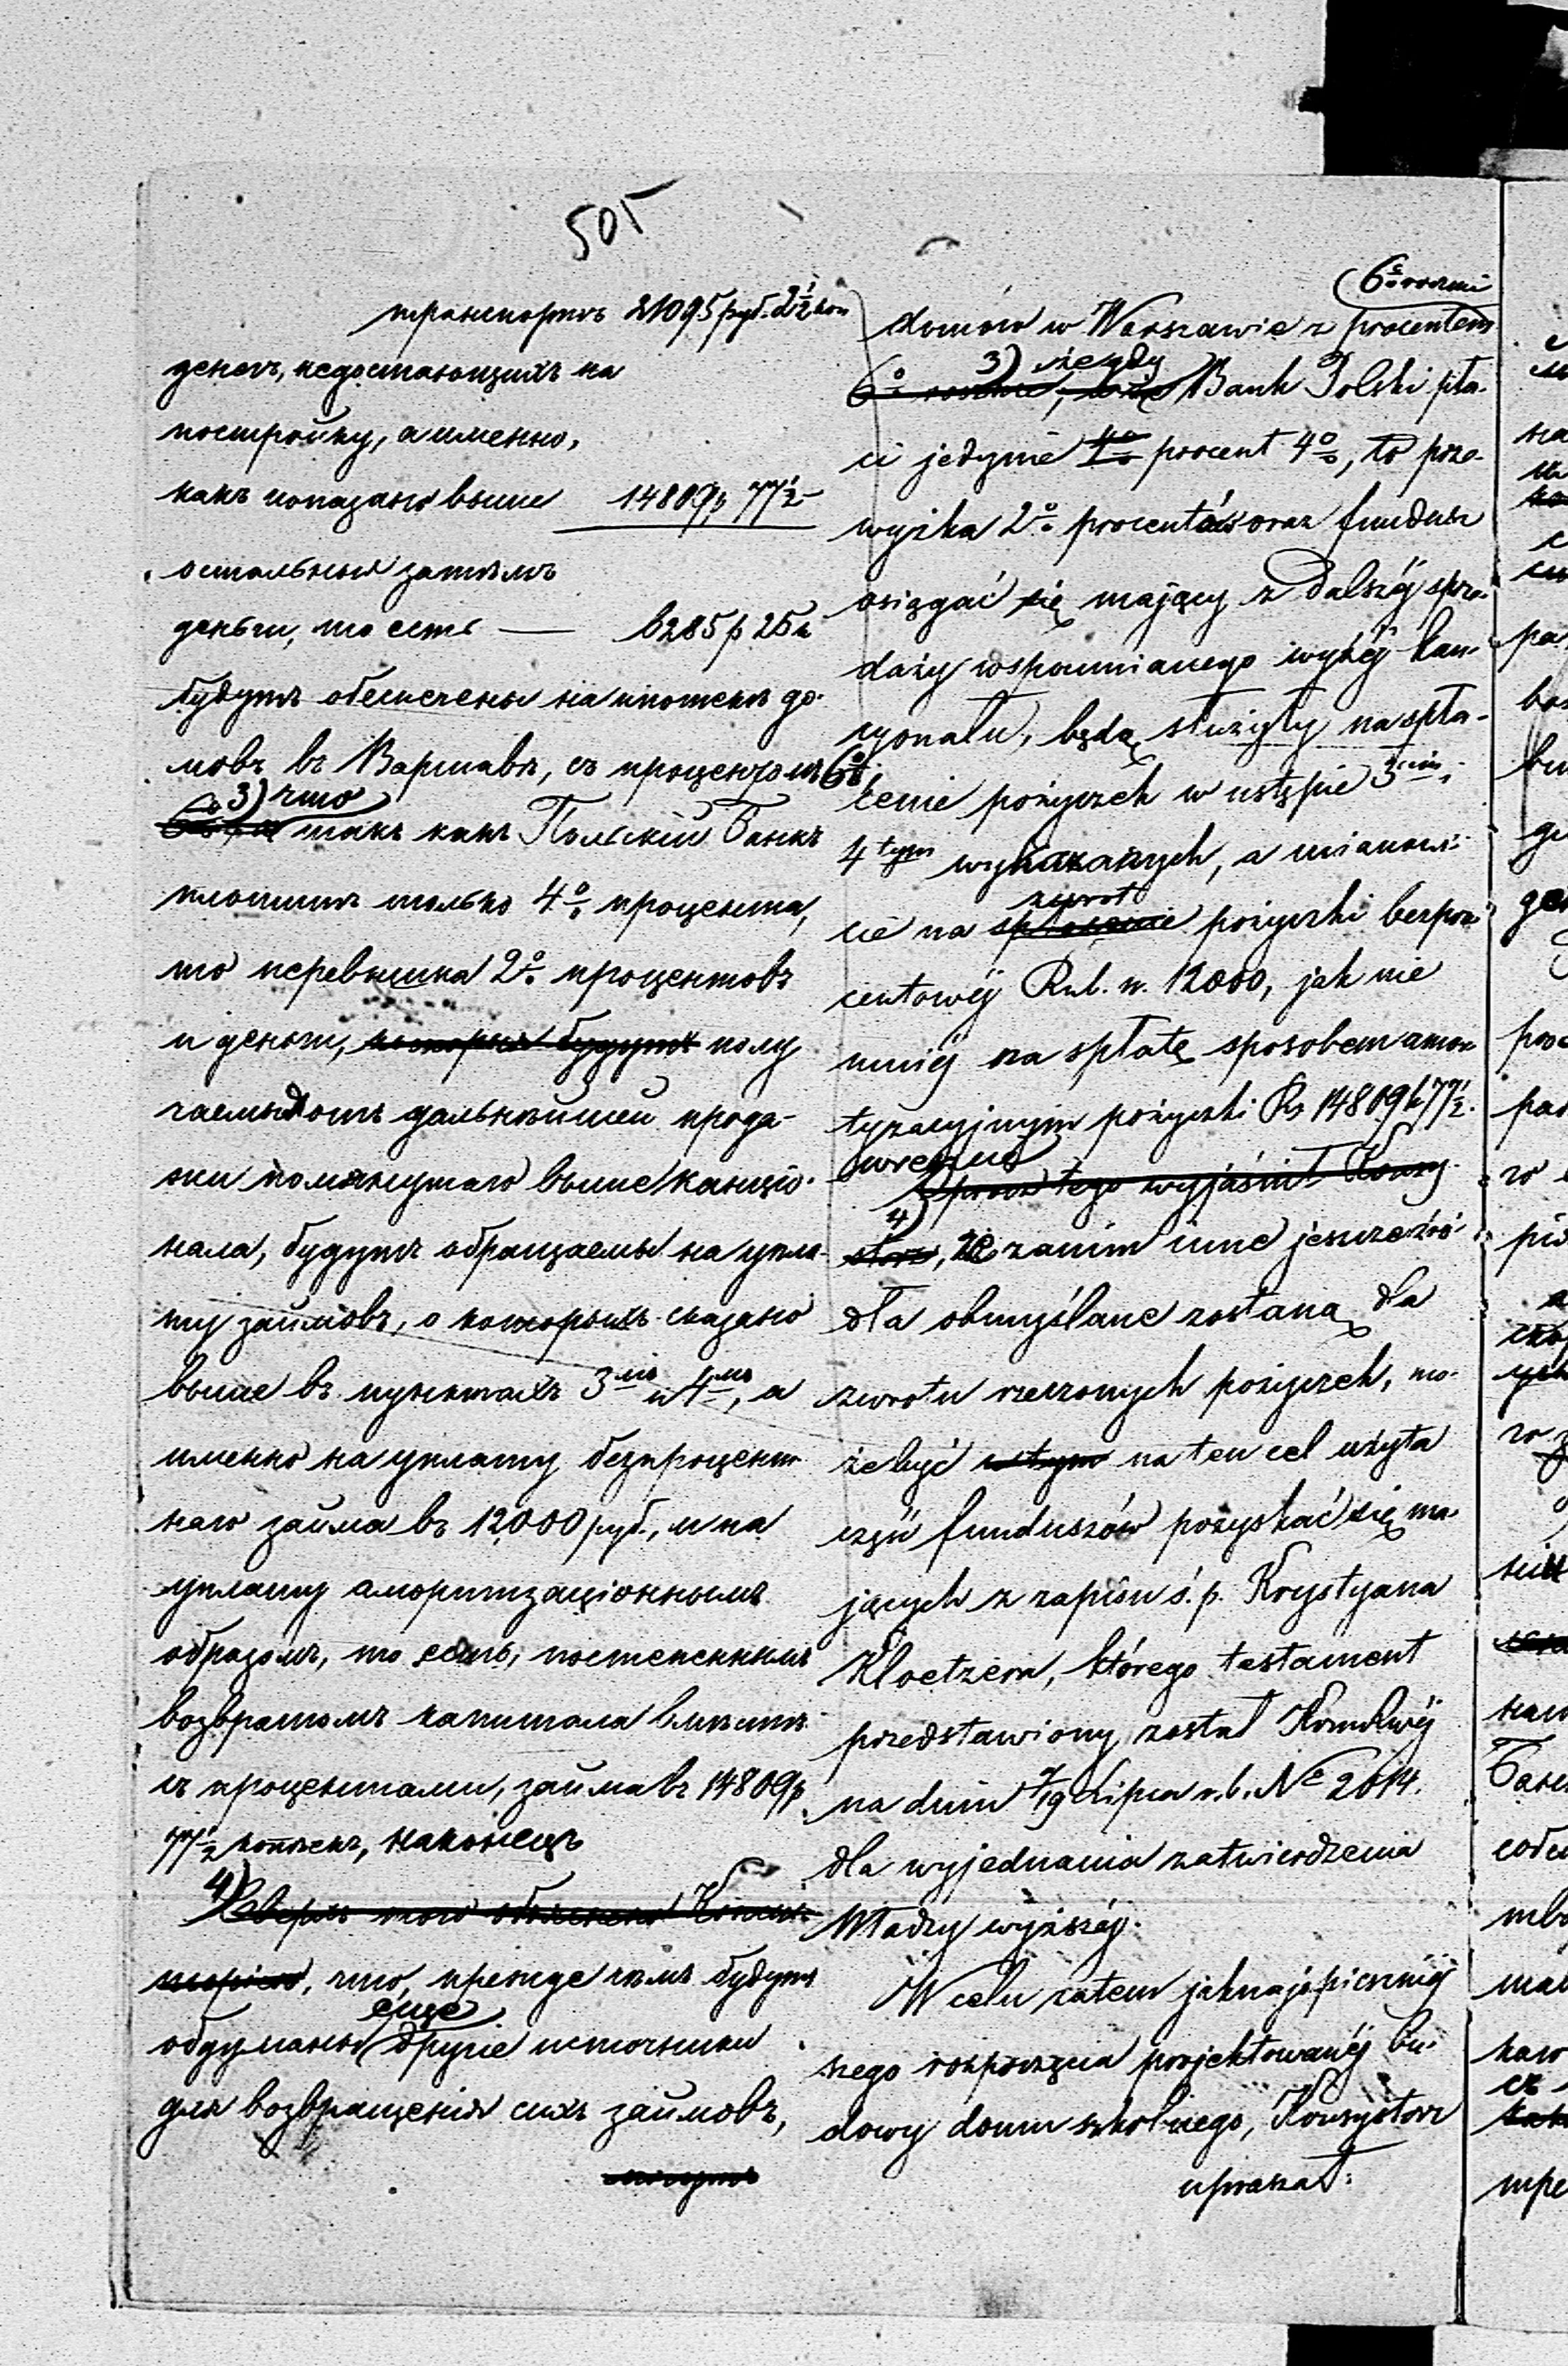 505
транспортъ 21095 руб. 2½ коп
денегъ, недостающихъ на
постройку, а именно,
какъ показано выше 14809 р 77½ -
остальныя затѣмъ
деньги, то есть — 6285 р 25 к
будутъ обеспечены на ипотекѣ до-
мовъ въ Варшавѣ, съ процентомъ 6%;
3) что
такъ какъ Польскій Банкъ
платитъ только 4% процента,
то перевышка 2% процентовъ
и деньги, которыя будутъ полу
чаемы отъ дальнѣйшей прода-
жи помянутаго выше канціо-
нала, будутъ обращаемы на упла-
ту займовъ, о которыхъ сказано
выше въ пунктахъ 3мъ и 4мъ, а
именно на уплату безпроцент
наго займа въ 12,000 руб., и на
уплату амортизаціоннымъ
образомъ, то есть, постепеннымъ
возвратомъ капитала вмѣстѣ
съ процентами, займа въ 14809 р
77½ копѣекъ, наконецъ
4) Сверхъ того объяснено Конси-
сторіею, что, прежде чѣмъ будутъ
еще
обдуманы другіе источники
для возвращенія сихъ займовъ,
6% rocznie
domów w Warszawie z procentem
3) że gdy
6% rocznie, Bank Polski pła-
ci jedynie procent 4%, to prze-
wyżka 2% procentów oraz fundusz
osiągać się mający z dalszéj sprze-
daży wspomnianego wyżéj kan-
cyonału, będą służyły na spła-
cenie pożyczek w ustępie 3cim i
4tym wykazanych, a mianowi-
zwrot
cie na spłacenie pożyczki bezpro-
centowéj Rub. sr. 12000, jak nie
mniéj na spłatę sposobem amor
tyzacyjnym pożyczki Rs 14809 k 77½.
wreszcie
Oprócz tego wyjaśnił Konsy-
4)
storz, że zanim inne jeszcze źró-
dła obmyślane zostaną dla
zwrotu rzeczonych pożyczek, mo-
że być w tym na ten cel użyta
część funduszów pozyskać się ma-
jących z zapisu ś. p. Krystyana
Kloetzera, którego testament
przedstawiony został Kom Rząj
na dniu 7/19 Lipca r. b. Nr 2014.
dla wyjednania zatwierdzenia
Władzy wyższéj.
W celu zatem jaknajspieszniéj
szego rozpoczęcia projektowanéj bu-
dowy domu szkolnego, Konsystorz
upraszał: